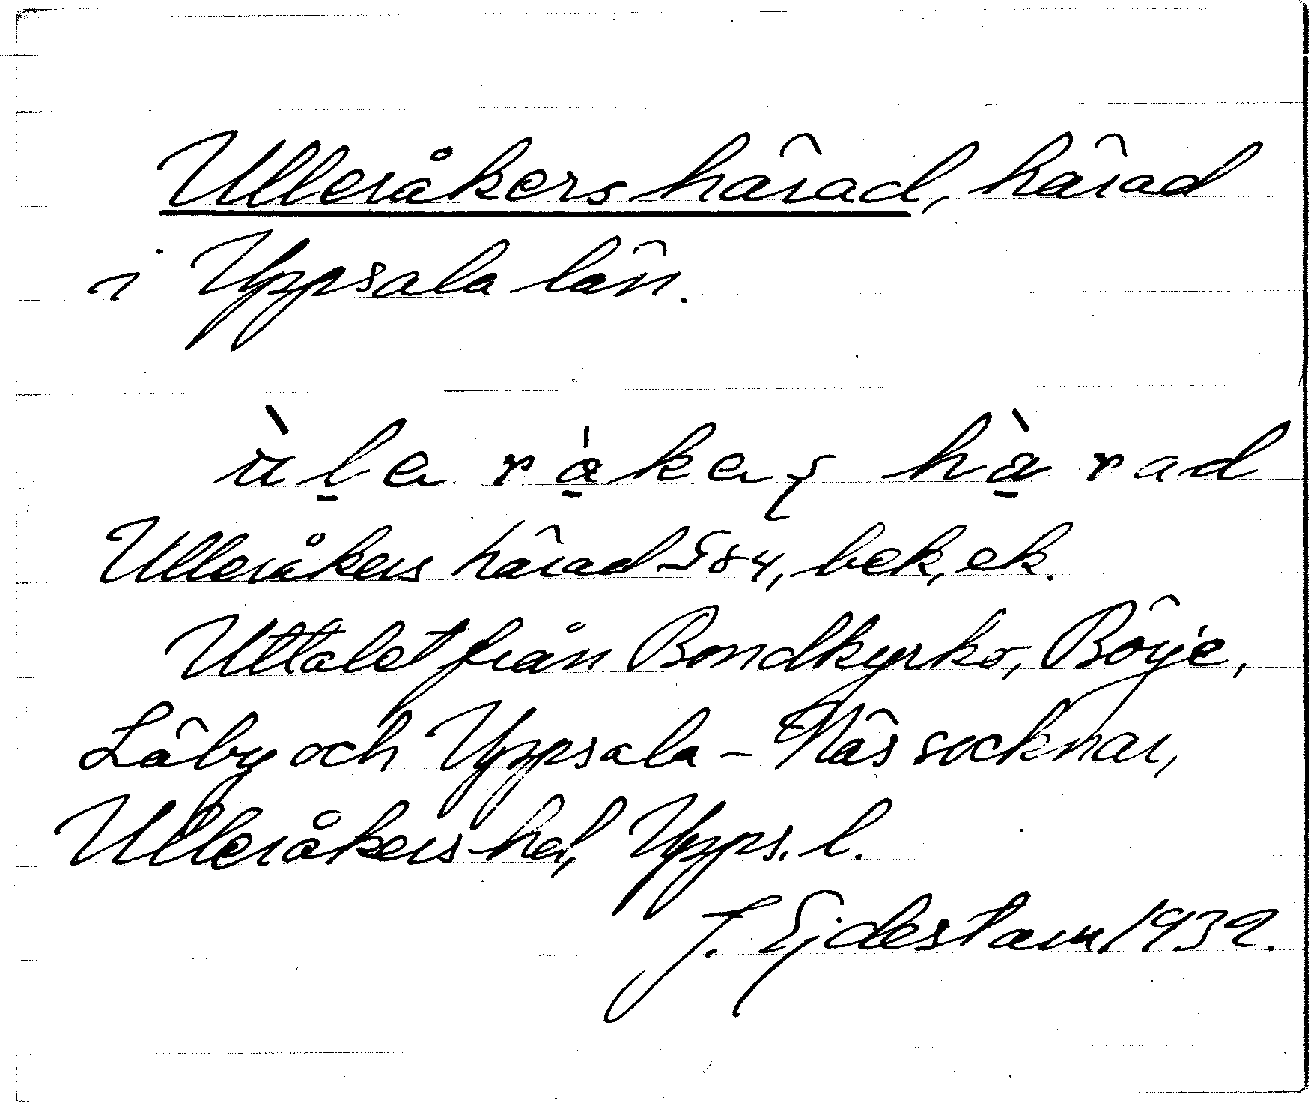 Ulleråkers härad, härad
i Uppsala län.
ùḷa rå̱kaș hà̱rad
Ulleråkers härad 584, bek, ek.
Uttalet från Bondkyrko, Börje,
Läby och Uppsala-Näs socknar,
Ulleråkers hd, Upps. l.
J. Ejdestam 1939.